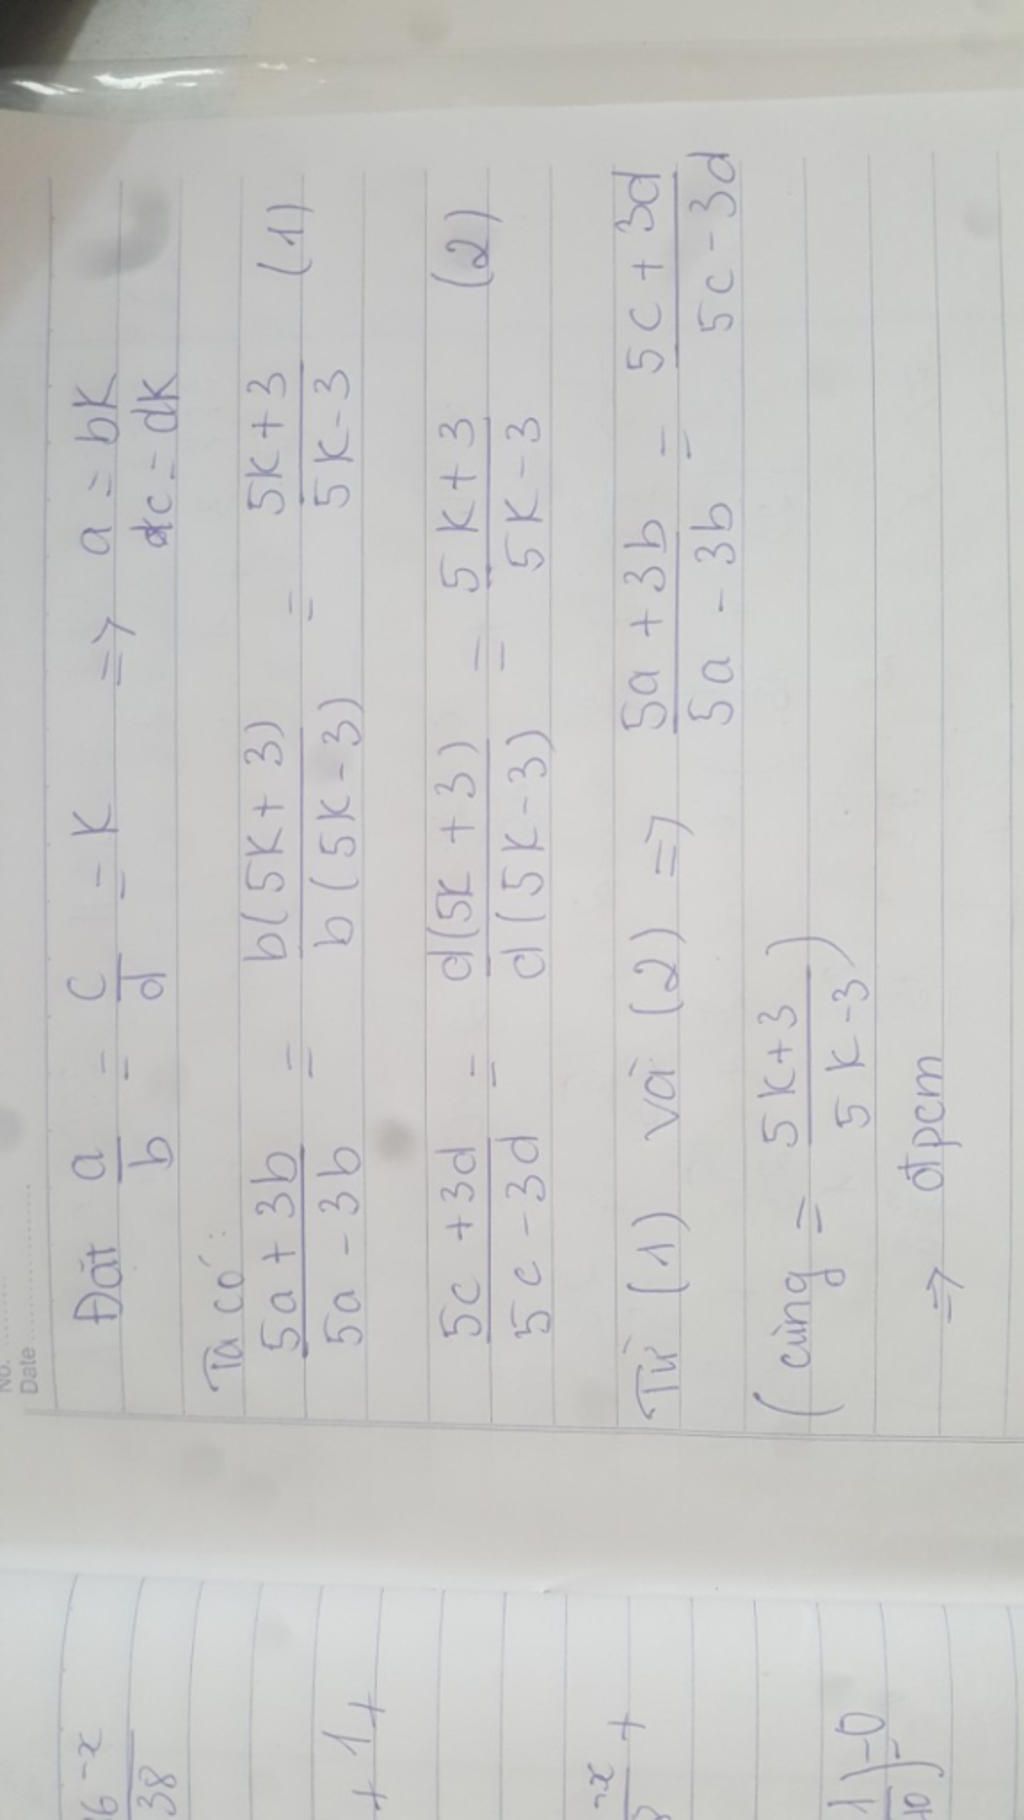 No. ..........
Date ....................
Đặt a/b = c/d = K => a = bK
c = dK
Ta có:
(5a + 3b)/(5a - 3b) = b(5K + 3)/b(5K - 3) = (5K + 3)/(5K - 3) (1)
(5c + 3d)/(5c - 3d) = d(5K + 3)/d(5K - 3) = (5K + 3)/(5K - 3) (2)
Từ (1) và (2) => (5a + 3b)/(5a - 3b) = (5c + 3d)/(5c - 3d)
(cùng = (5K + 3)/(5K - 3))
=> đpcm
6 - x
38
+ 1 +
- x
+
1
10
) = 0